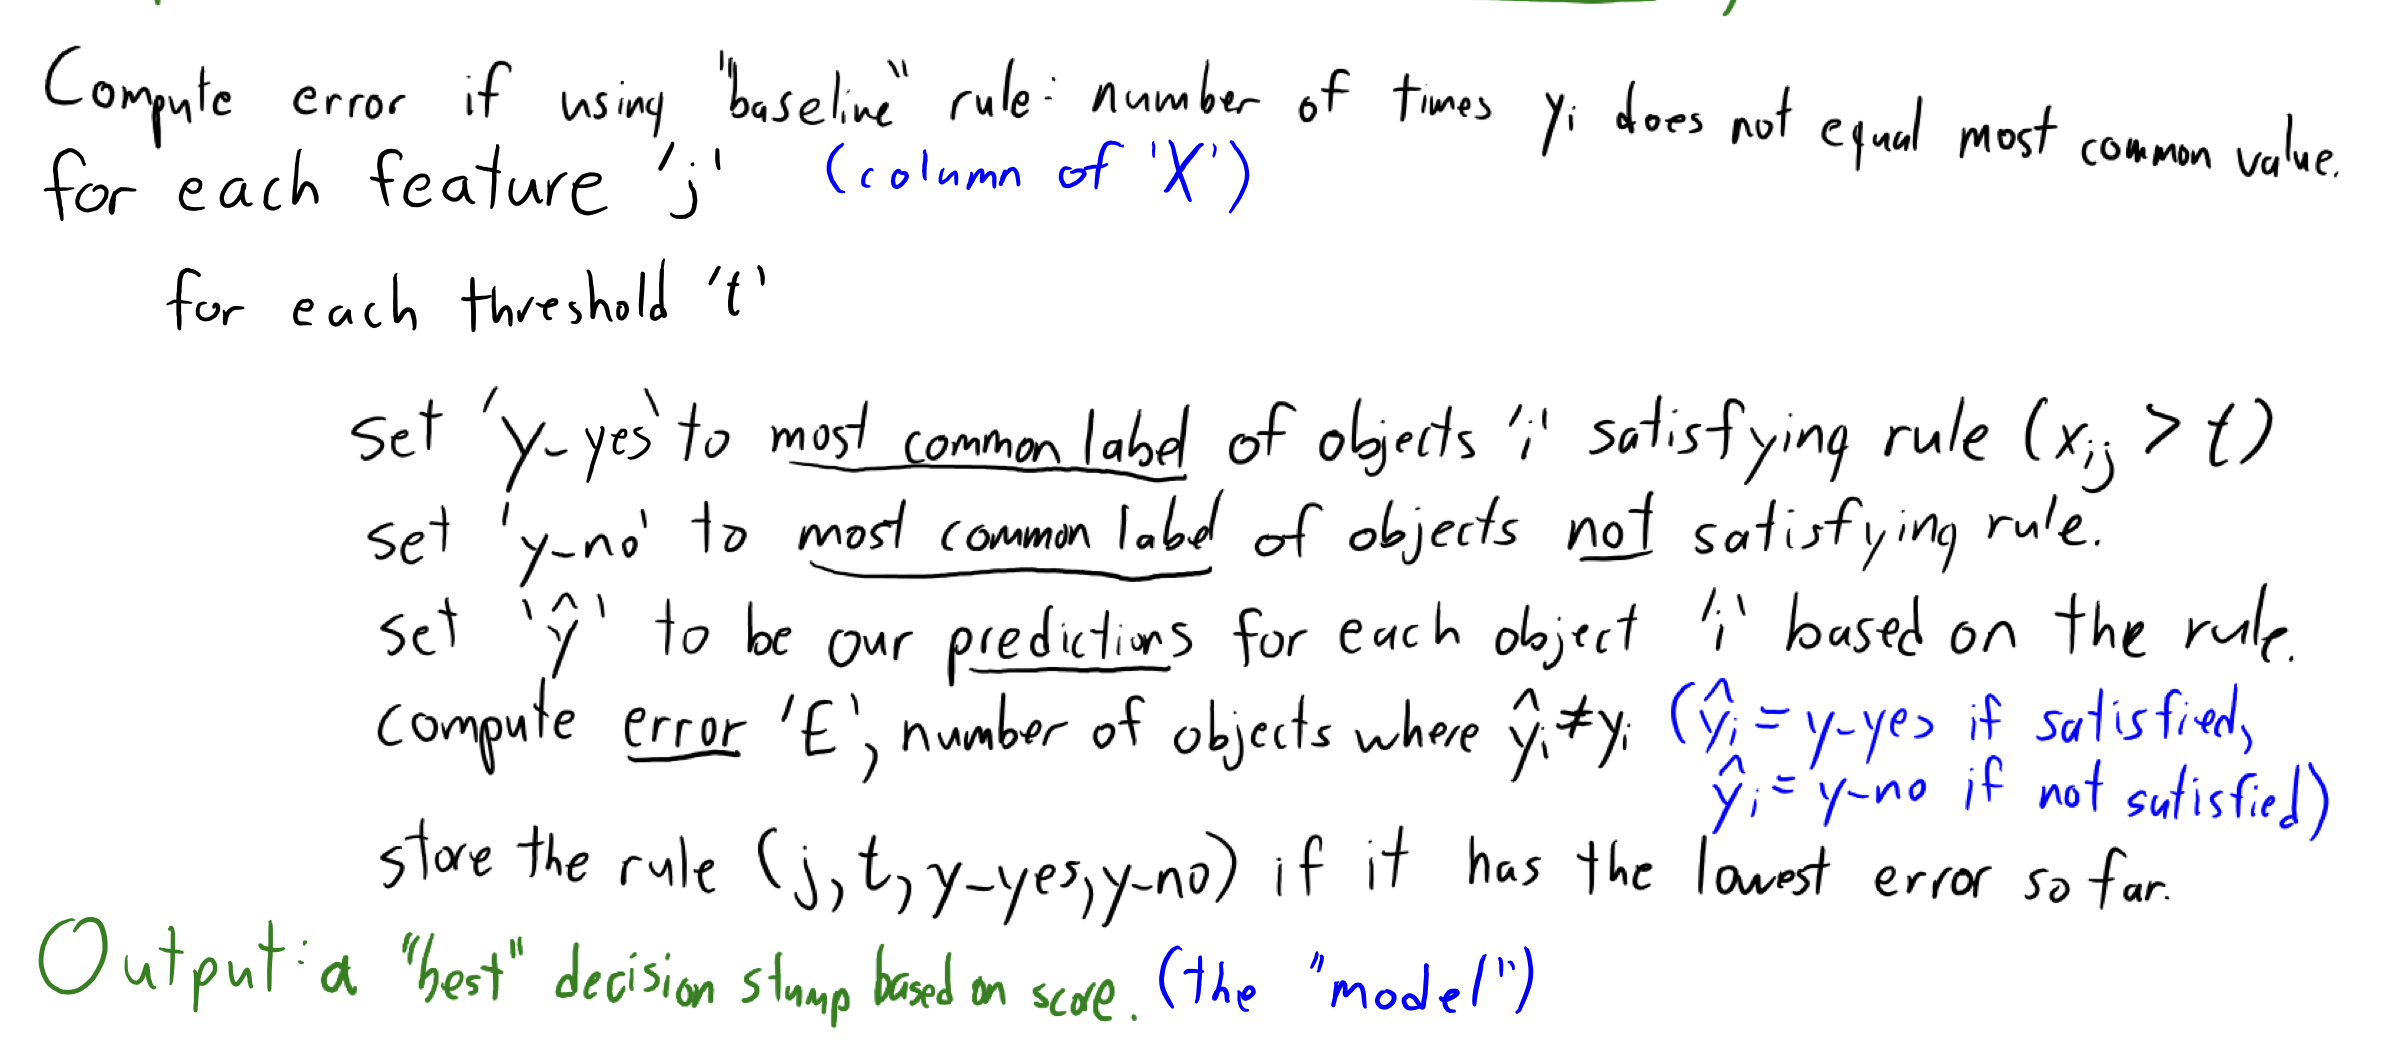 Compute error if using "baseline" rule: number of times yᵢ does not equal most common value.
for each feature 'j' (column of 'X')
for each threshold 't'
set 'y-yes' to most common label of objects 'i' satisfying rule (xᵢⱼ > t)
set 'y-no' to most common label of objects not satisfying rule.
set 'ŷ' to be our predictions for each object 'i' based on the rule.
compute error 'E', number of objects where ŷᵢ ≠ yᵢ (ŷᵢ = y-yes if satisfied,
ŷᵢ = y-no if not satisfied)
store the rule (j, t, y-yes, y-no) if it has the lowest error so far.
Output: a "best" decision stump based on score. (the "model")